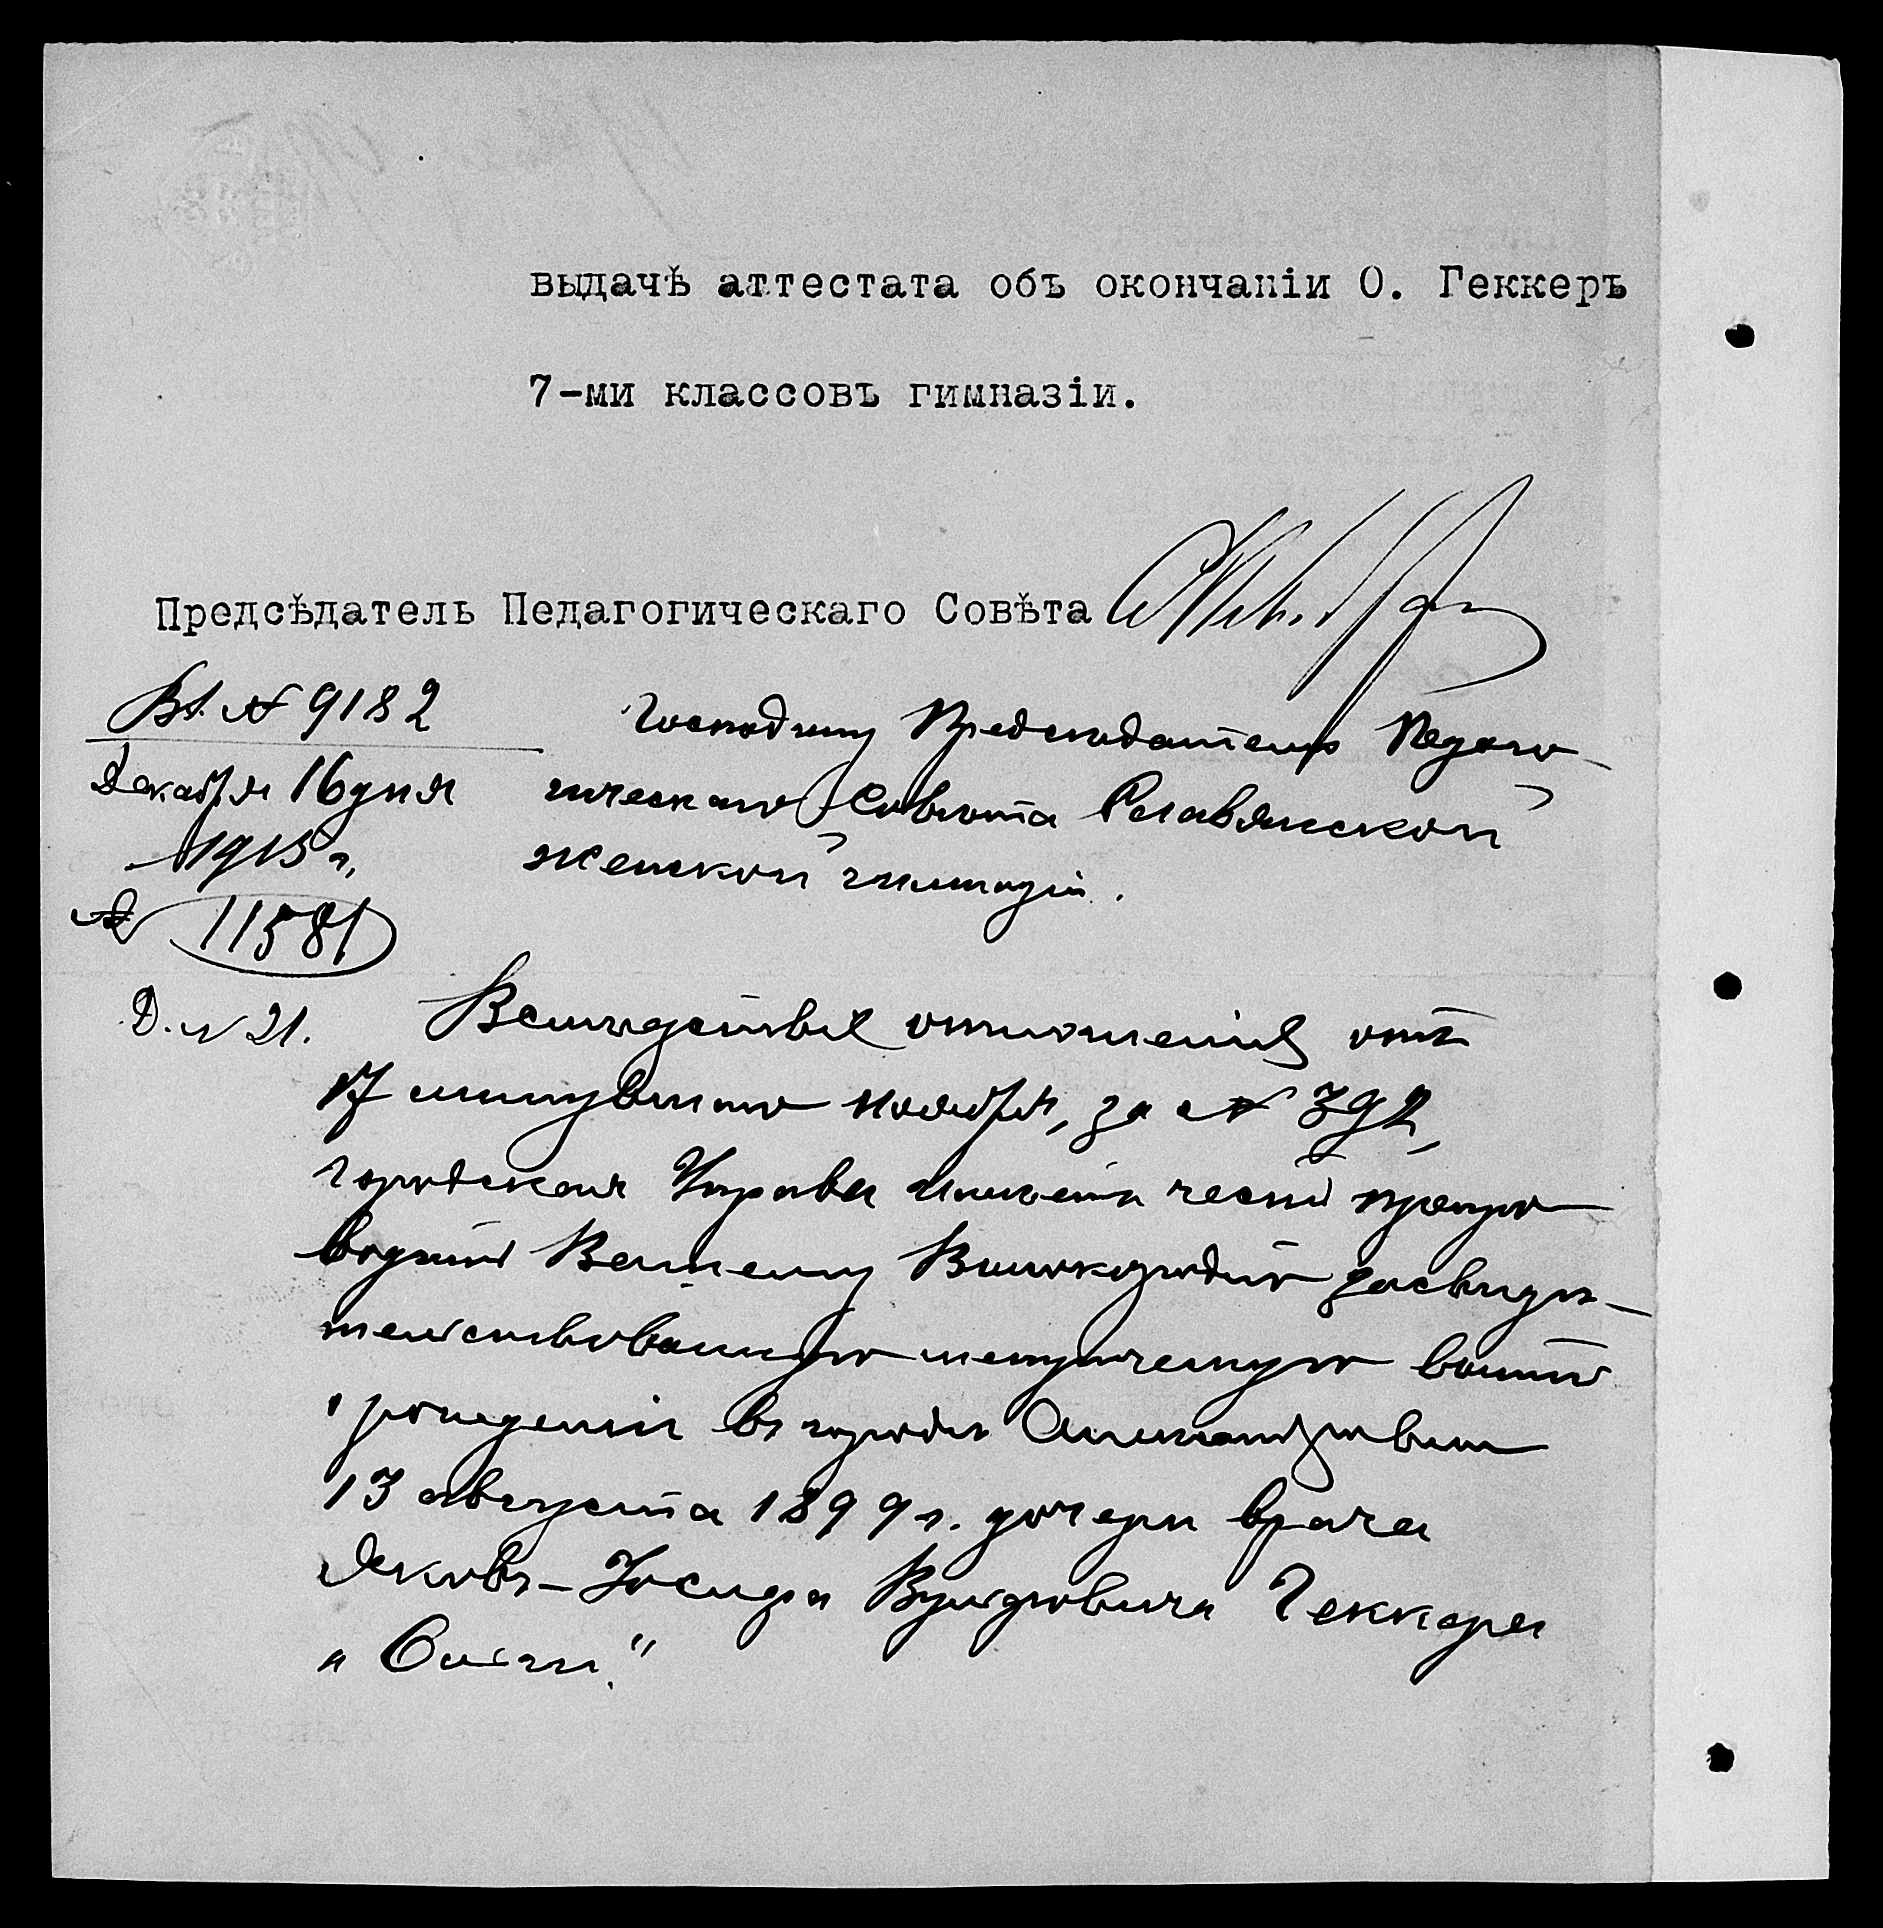 выдачѣ аттестата объ окончаніи О. Геккеръ
7-ми классовъ гимназіи.
Предсѣдатель Педагогическаго Совѣта
Вх. № 9182
Декабря 16 дня
1915 г.
№ 11581
Д. № 21.
Господину Предсѣдателю Педаго-
гическаго Совѣта Славянской
женской гимназіи.
Вслѣдствіе отношенія отъ
17 минувшаго ноября, за № 392,
городская Управа имѣетъ честь препро-
водить Вашему Высокородію засвидѣ-
тельствованную метрическую выпись
о рожденіи въ городѣ Александровскѣ
13 августа 1899 г. дочери врача
Яковъ-Іосифа Вульфовича Геккера
„Ольги."